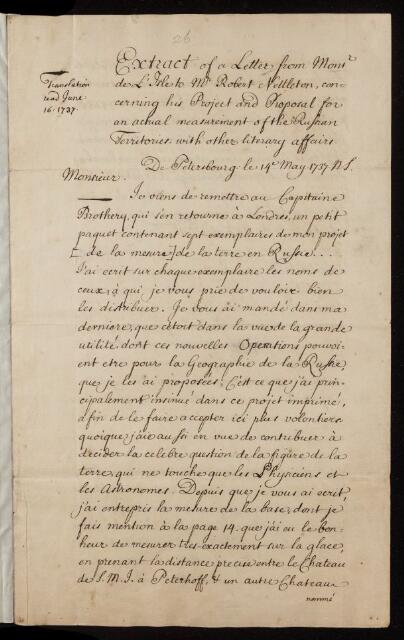 26
Extract of a Letter from Mons.r
de L'Isle to M.r Robert Nettleton, con-
cerning his Project and Proposal for
an actual measurement of the Russian
Territories, with other literary affairs.
Translation
read June.
16. 1737.
De Petersbourg le 14.e May 1737 N.S.
Monsieur.
Je viens de remettre au Capitaine
Brothery, qui s'en retourne à Londres, un petit
paquet contenant sept exemplaires de mon projet
[de la mesure] de la terre en Russie...
J'ai ecrit sur chaque exemplaire les noms de
ceux, à qui je vous prie de vouloir bien
les distribuer. Je vous ai mandé dans ma
derniere, que c'etoit dans la vue de la grande
utilité dont ces nouvelles Operations pouvoi-
ent etre pour la Geographie de la Russie,
que je les ai proposées. C'est ce que j'ai prin-
cipalement insinué dans ce projet imprimé,
afin de le faire accepter ici plus volontiers
quoique j'aie aussi en vue de contribuer à
décider la celebre question de la figure de la
terre, qui ne touche que les Physiciens et
les Astronomes. Depuis que je vous ai ecrit,
j'ai entrepris la mesure de la base, dont je
fais mention à la page 14. que j'ai eu le bon-
heur de mesurer tres-exactement sur la glace,
en prenant la distance precise entre le Chateau
de S. M. I. à Peterhoff, & un autre Chateau
nommé